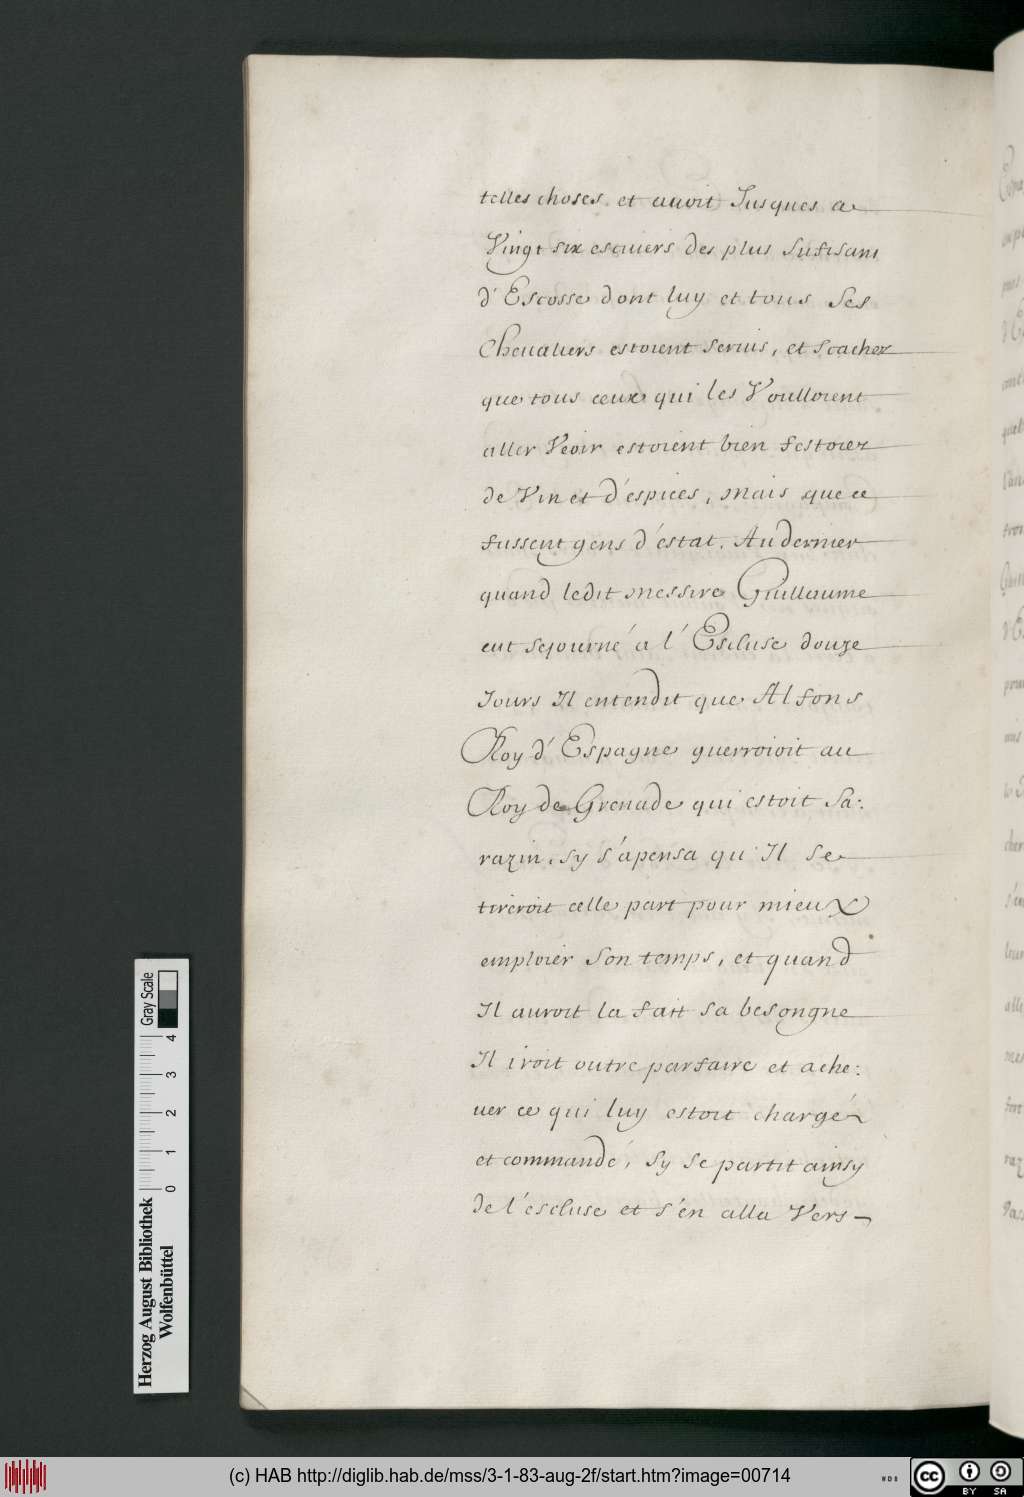 telles choses. et auoit Jusques a
Vingt six escuiers des plus Sufisans
d'Escosse dont luy et tous Ses
Cheualiers estoient seruis, et scachez
que tous ceux qui les Voulloient
aller Veoir estoient bien festoiez
de Vin et d'espices, mais que ce
fussent gens d'estat. Au dernier
quand ledit messire Guillaume
eut sejourné a l'Escluse douze
Jours Il entendit que Alfons
Roy d'Espagne guerroioit au
Roy de Grenade qui estoit Sa:
razin, sy s'apensa qu'Il se
tireroit celle part pour mieux
emploier Son temps, et quand
Il auroit la fait sa besongne
Il iroit outre parfaire et ache:
uer ce qui luy estoit chargé
et commandé, sy se partit ainsy
de l'escluse et s'en alla Vers
Herzog August Bibliothek
Wolfenbüttel
0 1 2 3 4
Gray Scale
(c) HAB http://diglib.hab.de/mss/3-1-83-aug-2f/start.htm?image=00714
WDB
cc BY SA